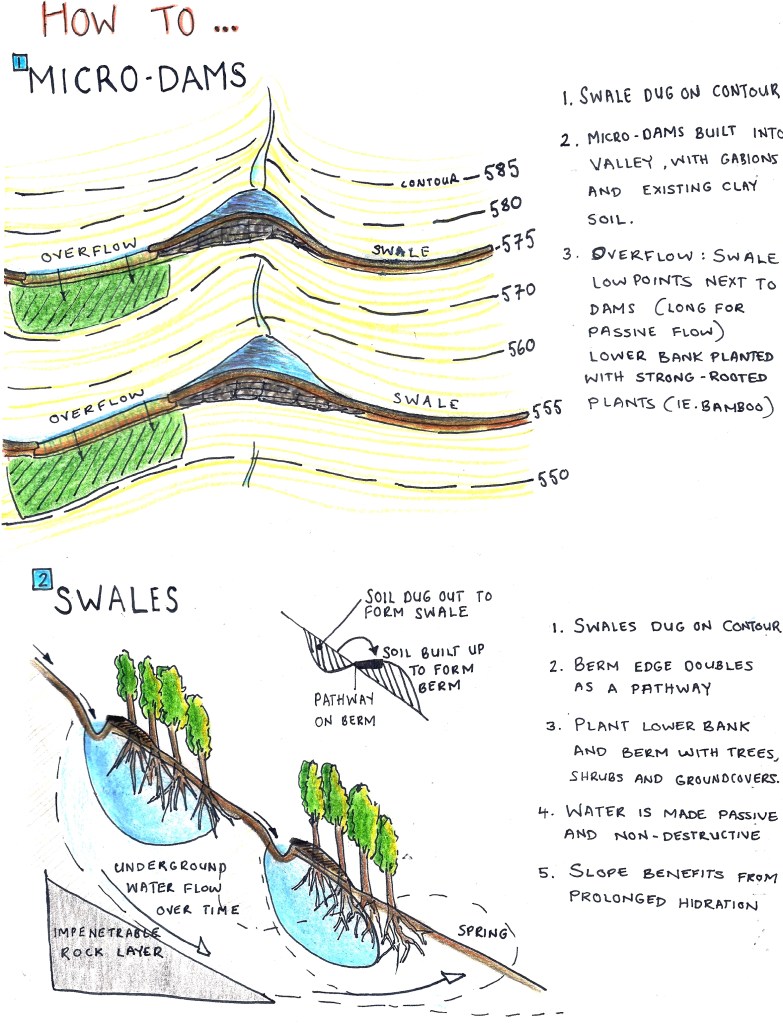 HOW TO ...
1
MICRO-DAMS
CONTOUR
585
580
OVERFLOW
SWALE
575
570
560
OVERFLOW
SWALE
555
550
1. SWALE DUG ON CONTOUR
2. MICRO-DAMS BUILT INTO
VALLEY, WITH GABIONS
AND EXISTING CLAY
SOIL.
3. OVERFLOW: SWALE
LOW POINTS NEXT TO
DAMS (LONG FOR
PASSIVE FLOW)
LOWER BANK PLANTED
WITH STRONG-ROOTED
PLANTS (IE. BAMBOO)
2
SWALES
SOIL DUG OUT TO
FORM SWALE
SOIL BUILT UP
TO FORM
BERM
PATHWAY
ON BERM
UNDERGROUND
WATER FLOW
OVER TIME
IMPENETRABLE
ROCK LAYER
SPRING
1. SWALES DUG ON CONTOUR
2. BERM EDGE DOUBLES
AS A PATHWAY
3. PLANT LOWER BANK
AND BERM WITH TREES,
SHRUBS AND GROUNDCOVERS.
4. WATER IS MADE PASSIVE
AND NON-DESTRUCTIVE
5. SLOPE BENEFITS FROM
PROLONGED HIDRATION